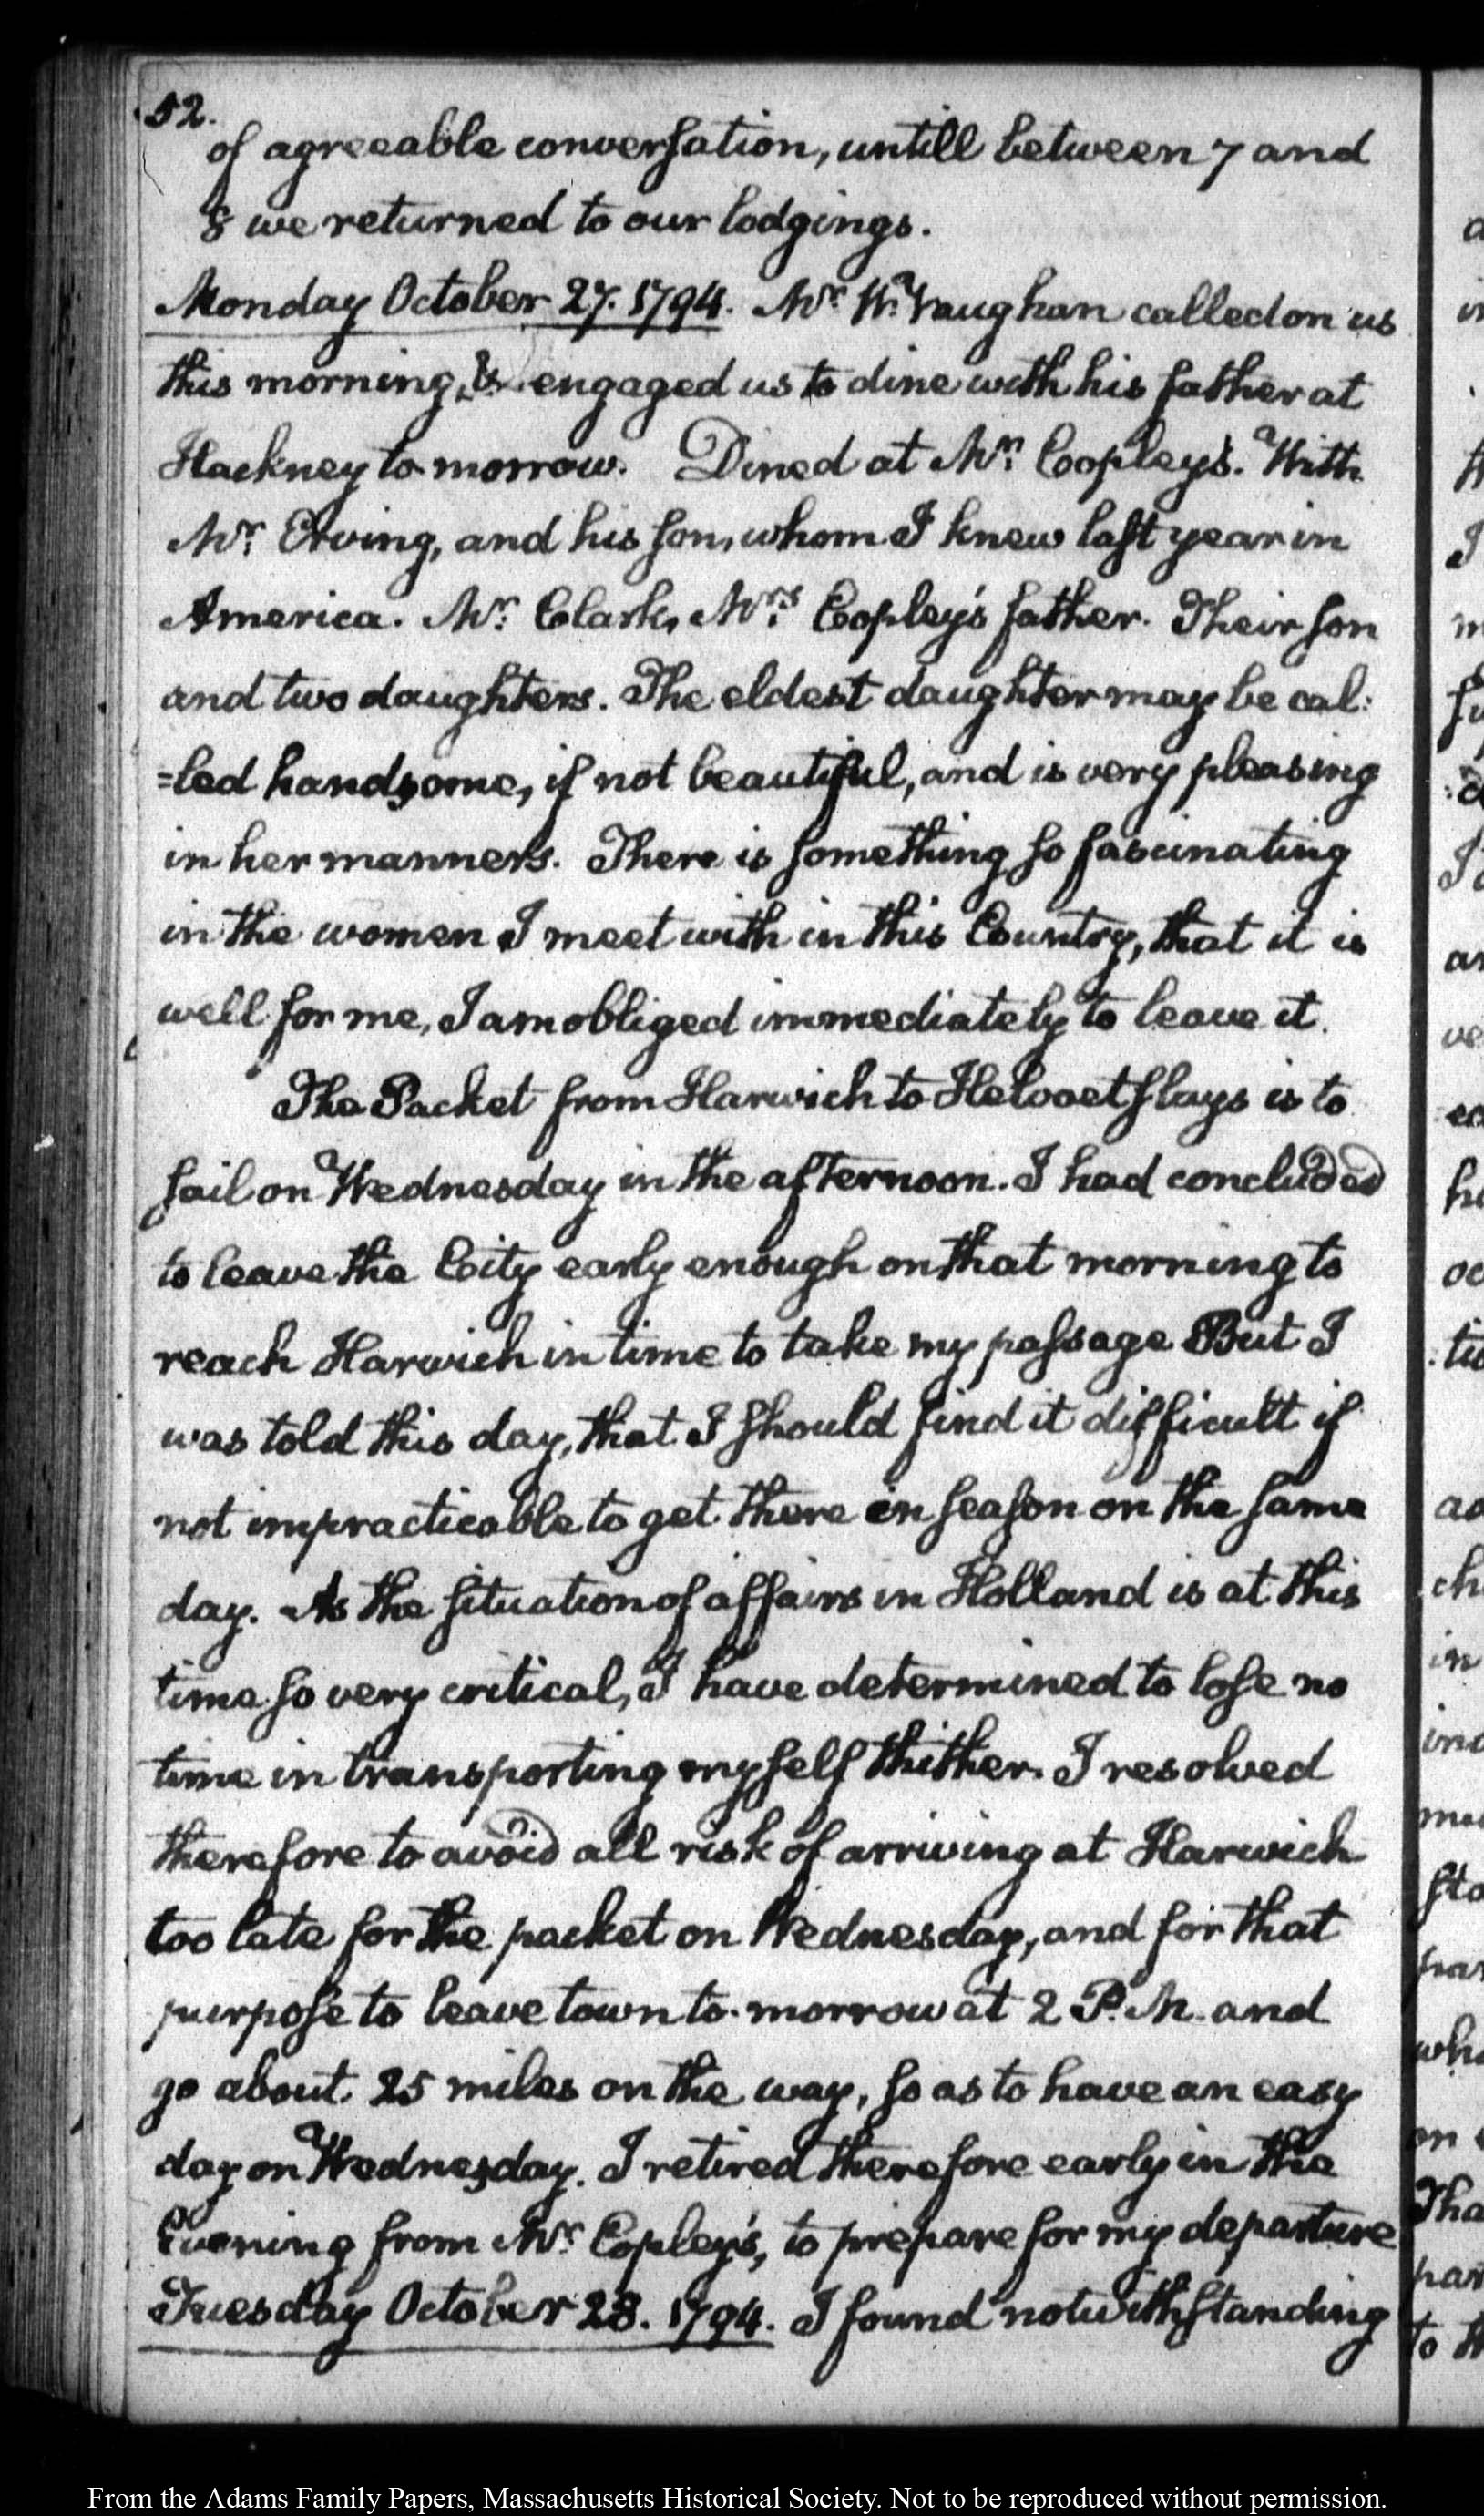 52.
of agreeable conversation, untill between 7 and
8 we returned to our lodgings.
Monday October 27. 1794. Mr. Wm. Vaughan called on us
this morning, & engaged us to dine with his father at
Hackney to-morrow. Dined at Mr. Copley's. With
Mr. Erving, and his son, whom I knew last year in
America. Mr. Clark, Mrs. Copley's father. Their son
and two daughters. The eldest daughter may be cal:
=led handsome, if not beautiful, and is very pleasing
in her manners. There is something so fascinating
in the women I meet with in this Country, that it is
well for me, I am obliged immediately to leave it.
The Packet from Harwich to Helvoetslays is to
sail on Wednesday in the afternoon. I had concluded
to leave the City early enough on that morning to
reach Harwich in time to take my passage But I
was told this day, that I should find it difficult if
not impracticable to get there in season on the same
day. As the situation of affairs in Holland is at this
time so very critical, I have determined to lose no
time in transporting myself thither. I resolved
therefore to avoid all risk of arriving at Harwich
too late for the packet on Wednesday, and for that
purpose to leave town to-morrow at 2 P.M. and
go about 25 miles on the way, so as to have an easy
day on Wednesday. I retired therefore early in the
Evening from Mr. Copley's, to prepare for my departure
Tuesday October 28. 1794. I found notwithstanding
From the Adams Family Papers, Massachusetts Historical Society. Not to be reproduced without permission.